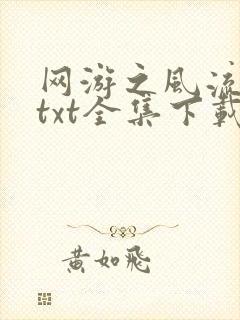 网游之风流
txt全集下载
黄如飞